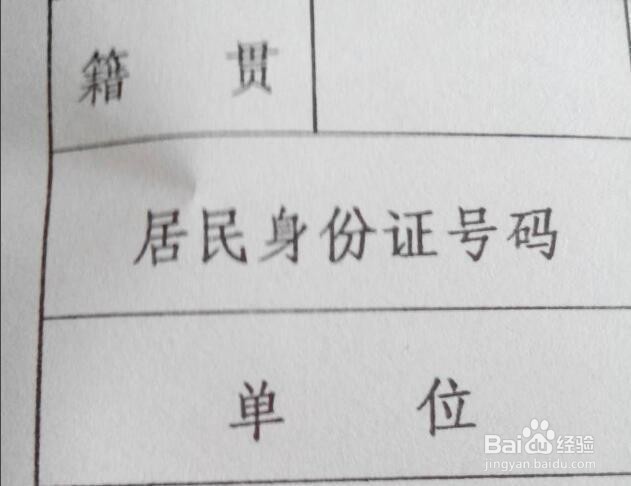 籍 贯
居民身份证号码
单 位
Baidu经验
jingyan.baidu.com